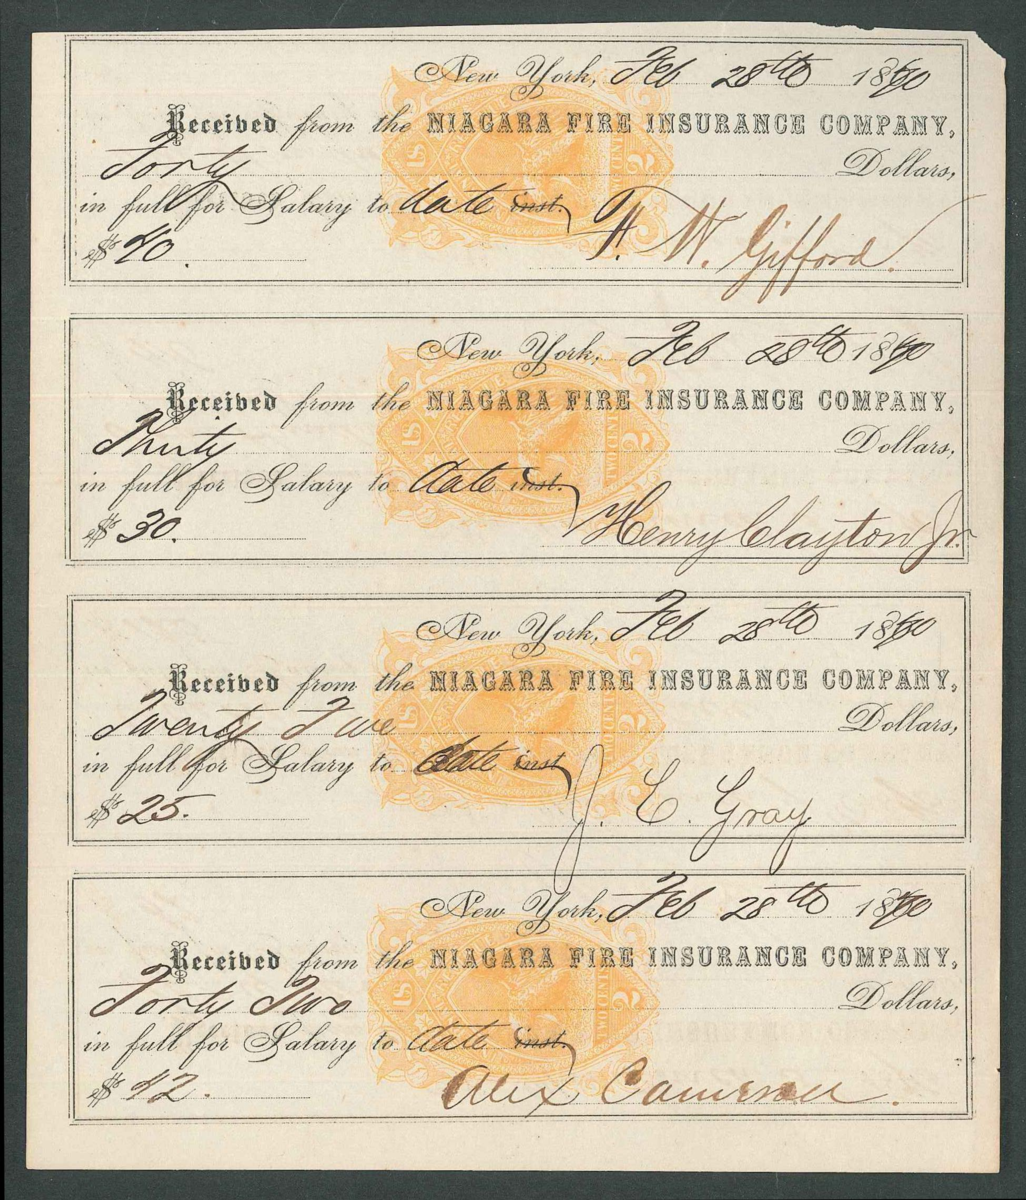 New York, Feb 28th 1870
Received from the NIAGARA FIRE INSURANCE COMPANY,
Forty Dollars,
in full for Salary to date inst.
$ 40.
W. Gifford.
U.S. TWO CENT 2
New York, Feb 28th 1870
Received from the NIAGARA FIRE INSURANCE COMPANY,
Thirty Dollars,
in full for Salary to date inst.
$ 30.
Henry Clayton Jr.
U.S. TWO CENT 2
New York, Feb 28th 1870
Received from the NIAGARA FIRE INSURANCE COMPANY,
Twenty Five Dollars,
in full for Salary to date inst
$ 25.
J. C. Gray
U.S. TWO CENT 2
New York, Feb 28th 1870
Received from the NIAGARA FIRE INSURANCE COMPANY,
Forty Two Dollars,
in full for Salary to date inst.
$ 42.
Alex Cameron.
U.S. TWO CENT 2